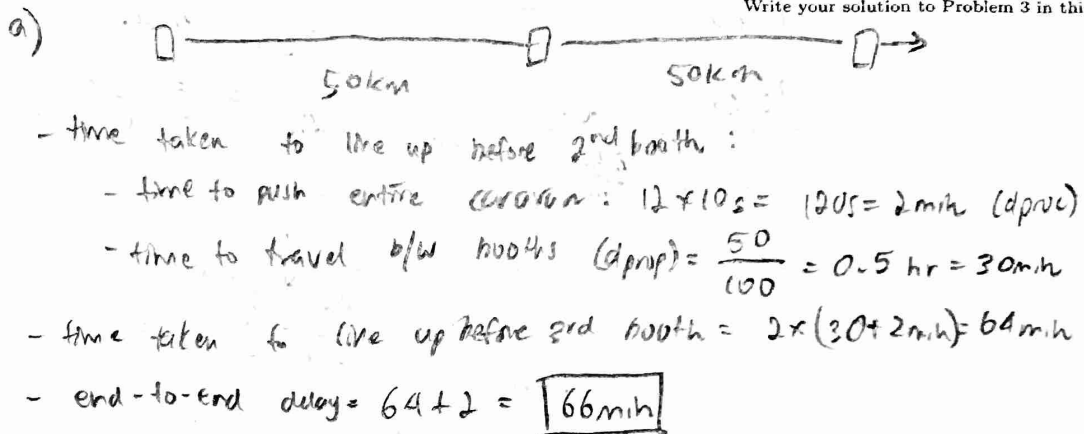 Write your solution to Problem 3 in thi
a)
50km 50km
- time taken to line up before 2nd booth :
- time to push entire caravan : 12 x 10s = 120s = 2 min (dproc)
- time to travel b/w booths (dprop) = 50/100 = 0.5 hr = 30min
- time taken to line up before 3rd booth = 2 x (30 + 2min) = 64 min
- end-to-end delay = 64 + 2 = 66min